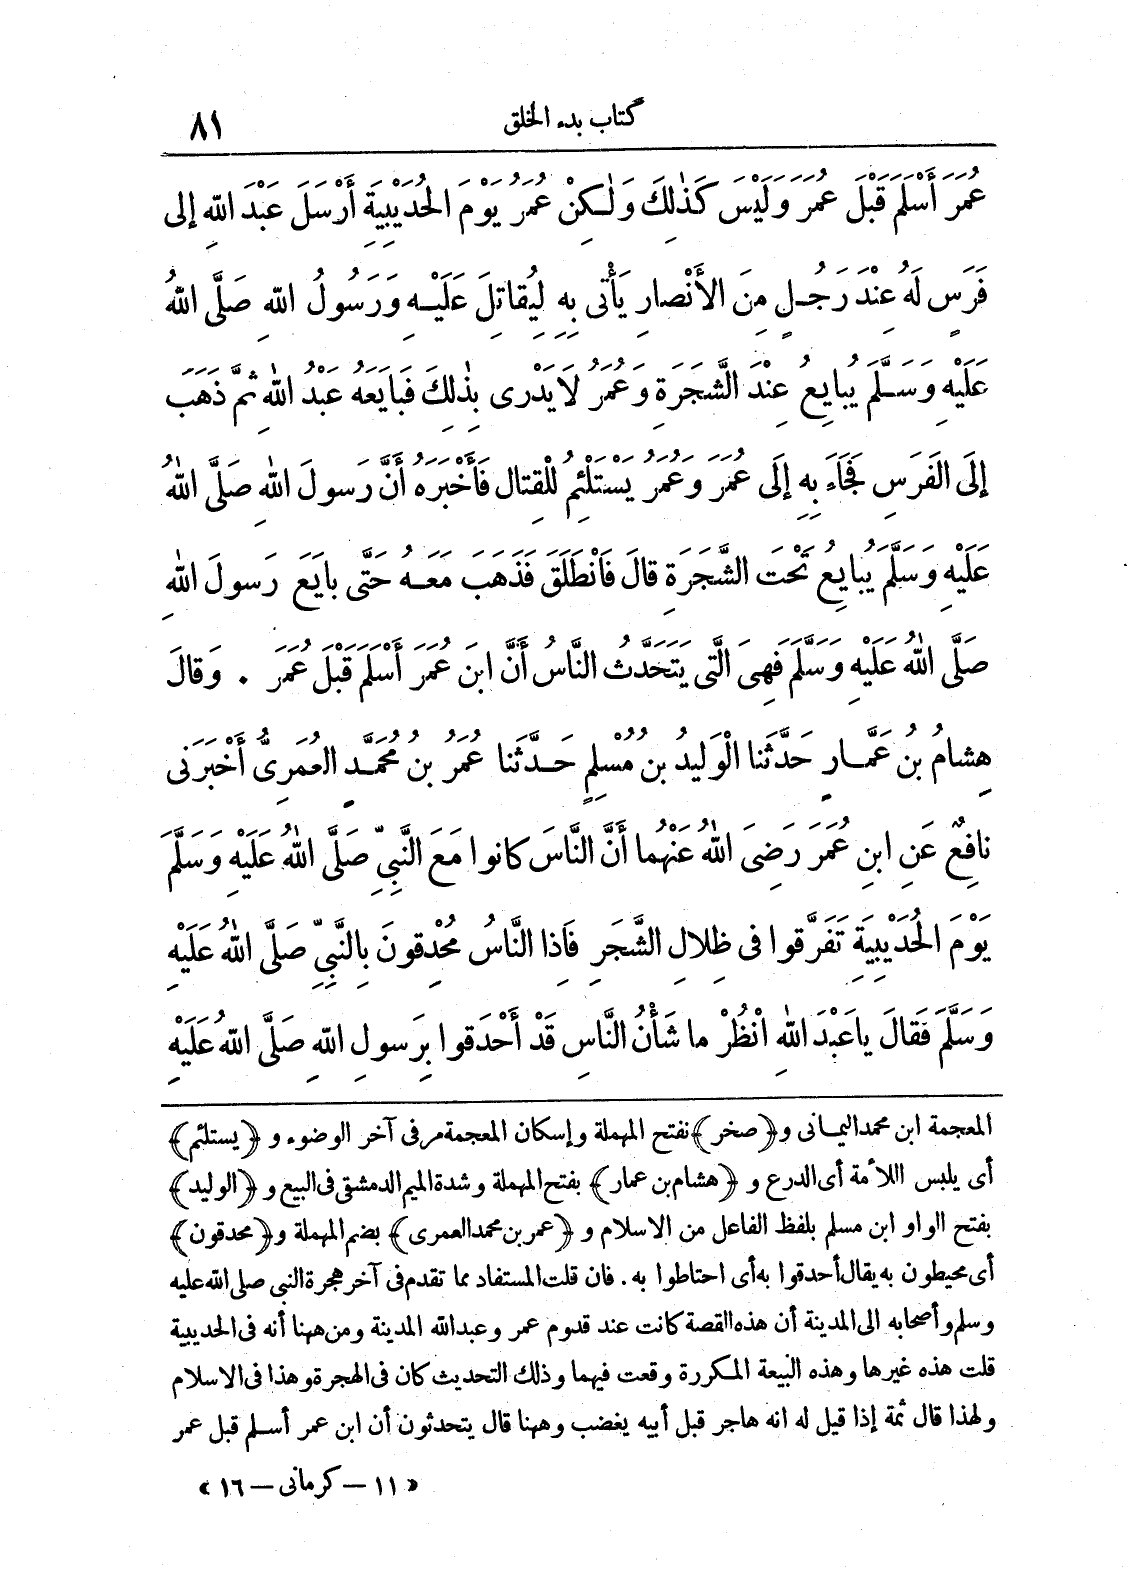 كتاب بدء الخلق ٨١
عُمَرَ أَسْلَمَ قَبْلَ عُمَرَ وَلَيْسَ كَذٰلِكَ وَلٰكِنْ عُمَرُ يَوْمَ الحُدَيْبِيَةِ أَرْسَلَ عَبْدَ اللهِ إلى
فَرَسٍ لَهُ عِنْدَ رَجُلٍ مِنَ الأَنْصارِ يَأْتى بِهِ لِيُقاتِلَ عَلَيْهِ وَرَسُولُ اللهِ صَلَّى اللهُ
عَلَيْهِ وَسَلَّمَ يُبايِعُ عِنْدَ الشَّجَرَةِ وَعُمَرُ لا يَدْرى بِذٰلِكَ فَبَايَعَهُ عَبْدُ اللهِ ثمَّ ذَهَبَ
إلَى الفَرَسِ فَجَاءَ بِهِ إلَى عُمَرَ وَعُمَرُ يَسْتَلْئِمُ لِلْقِتالِ فَأَخْبَرَهُ أَنَّ رَسولَ اللهِ صَلَّى اللهُ
عَلَيْهِ وَسَلَّمَ يُبايِعُ تَحْتَ الشَّجَرَةِ قالَ فَانْطَلَقَ فَذَهَبَ مَعَهُ حَتَّى بايَعَ رَسولَ اللهِ
صَلَّى اللهُ عَلَيْهِ وَسَلَّمَ فَهِىَ الَّتى يَتَحَدَّثُ النَّاسُ أَنَّ ابنَ عُمَرَ أَسْلَمَ قَبْلَ عُمَرَ . وَقالَ
هِشامُ بنُ عَمَّارٍ حَدَّثَنا الْوَلِيدُ بن مُسْلِمٍ حَدَّثَنا عُمَرُ بن مُحَمَّدٍ العُمَرِىُّ أَخْبَرَنى
نافِعٌ عَنِ ابنِ عُمَرَ رَضِىَ اللهُ عَنْهُما أَنَّ النَّاسَ كانوا مَعَ النَّبِيِّ صَلَّى اللهُ عَلَيْهِ وَسَلَّمَ
يَوْمَ الحُدَيْبِيَةِ تَفَرَّقوا فى ظِلالِ الشَّجَرِ فَاذا النَّاسُ مُحْدِقونَ بِالنَّبِيِّ صَلَّى اللهُ عَلَيْهِ
وَسَلَّمَ فَقالَ ياعَبْدَ اللهِ انْظُرْ ما شَأْنُ النَّاسِ قَدْ أَحْدَقوا بِرَسولِ اللهِ صَلَّى اللهُ عَلَيْهِ
المعجمة ابن محمد اليمانى و﴿صخر﴾ بفتح المهملة وإسكان المعجمة مر فى آخر الوضوء و ﴿يستلئم﴾
أى يلبس اللأمة أى الدرع و ﴿هشام بن عمار﴾ بفتح المهملة وشدة الميم الدمشقى فى البيع و ﴿الوليد﴾
بفتح الواو ابن مسلم بلفظ الفاعل من الاسلام و ﴿عمر بن محمد العمرى﴾ بضم المهملة و﴿محدقون﴾
أى محيطون به يقال أحدقوا به أى احتاطوا به . فان قلت المستفاد مما تقدم فى آخر هجرة النبي صلى الله عليه
وسلم وأصحابه الى المدينة أن هذه القصة كانت عند قدوم عمر وعبد الله المدينة ومن ههنا أنه فى الحديبية
قلت هذه غيرها وهذه البيعة المكررة وقعت فيهما وذلك التحديث كان فى الهجرة وهذا فى الاسلام
ولهذا قال ثمة إذا قيل له انه هاجر قبل أبيه يغضب وههنا قال يتحدثون أن ابن عمر أسلم قبل عمر
« ١١ — كرمانى — ١٦ »